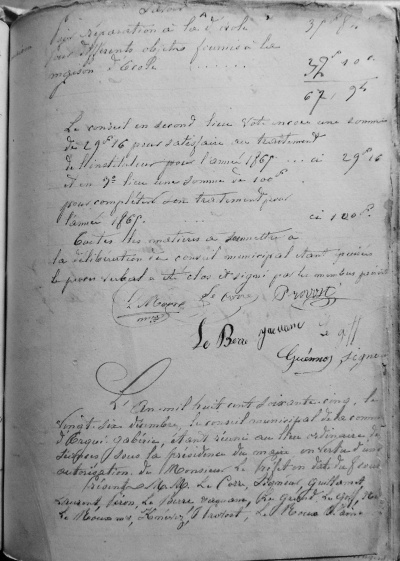 Savoir
pour réparation à la d. école 35f 8
pour différents objets fournis à la
maison d'école ....... 32f 10c
67, 9
Le conseil en second lieu vote encore une somme
de 29f16 pour satisfaire au traitement
de l'instituteur pour l'année 1865 ... ci 29f16
et en 3e lieu une somme de 100f
pour compléter son traitement pour
l'année 1865. ci 100f.
Toutes les matières à soumettre à
la délibération du conseil municipal étant
le procès verbal a été clos et signé par les membres
Le Maire Le Corre Provost
Le Berre Jaouane Le Goff
Guennos signeur
L'An mil huit cent soixante cinq, le
vingt six décembre, le conseil municipal de la commune
d'Ergué gabéric, étant réuni au lieu ordinaire de
sous la présidence du maire en vertu d'une
autorisation de Monsieur le Préfet en date du
Présents M.M. Le Corre, Signeur, Guillamet,
Laurent, Féron, Le Berre Jaouane, Le Grand, Le Goff,
Le Moenner, Provost, Le Roux